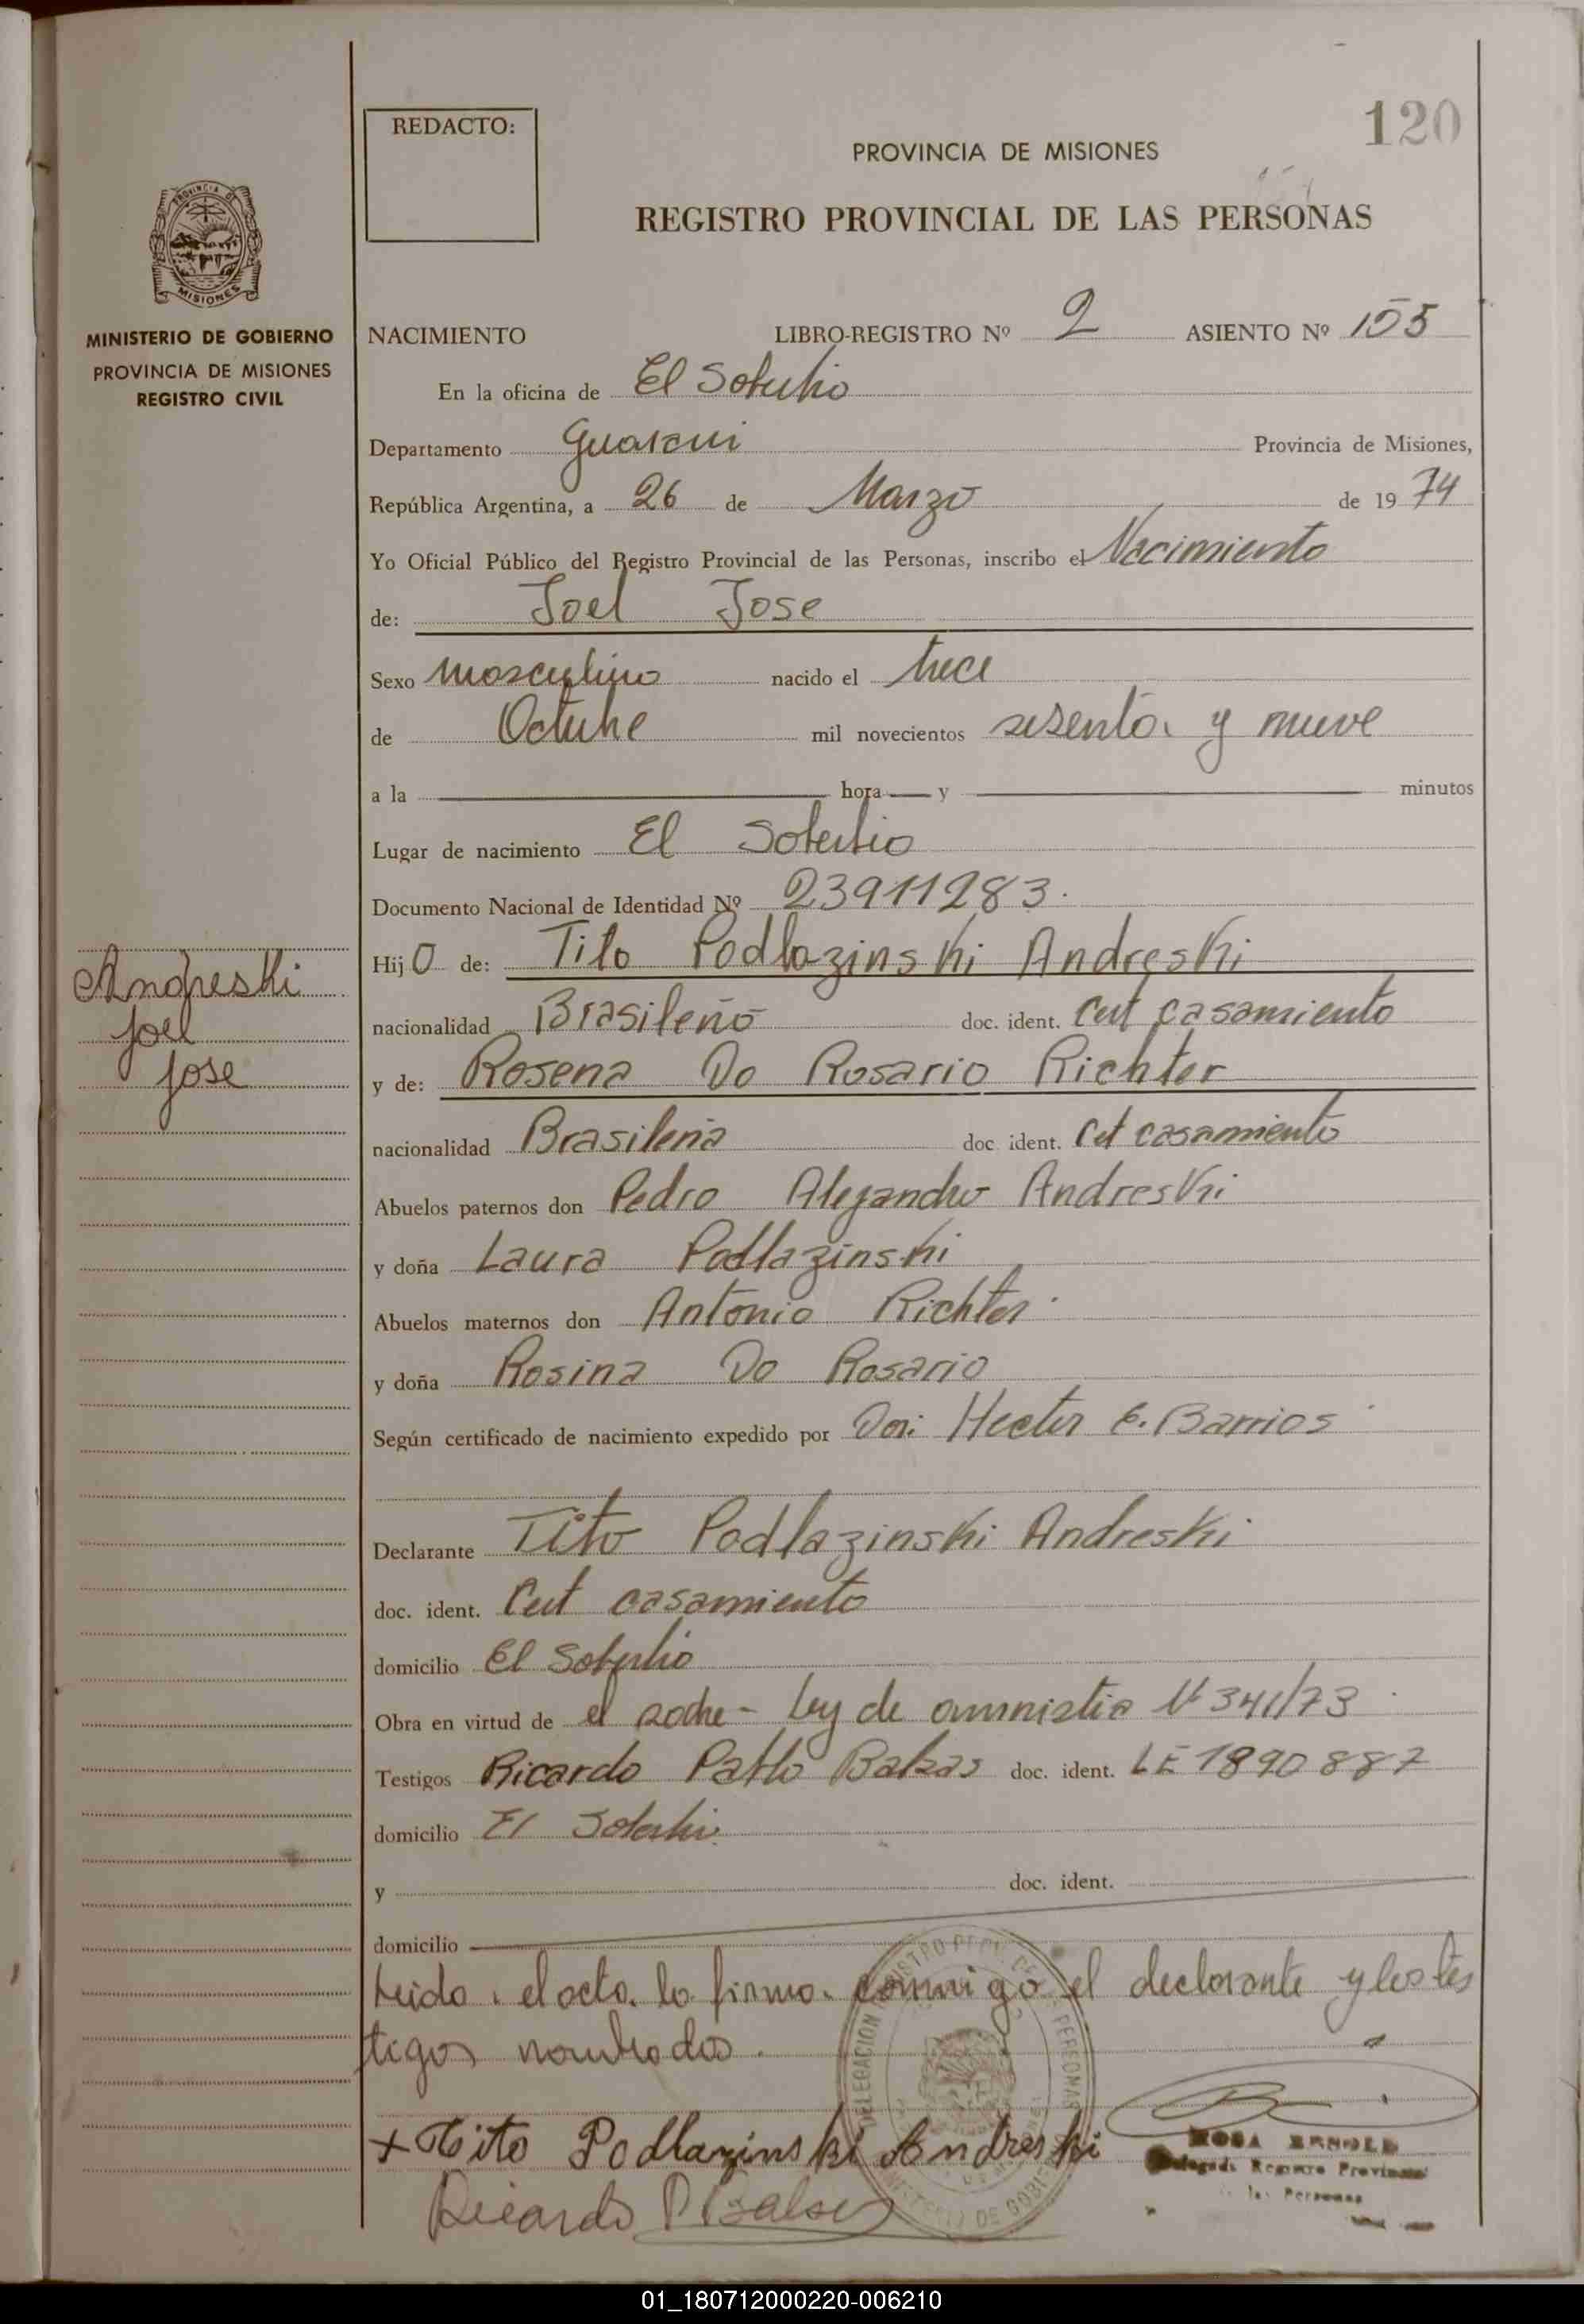 120
REDACTO:
PROVINCIA DE MISIONES
REGISTRO PROVINCIAL DE LAS PERSONAS
PROVINCIA DE
MISIONES
MINISTERIO DE GOBIERNO
PROVINCIA DE MISIONES
REGISTRO CIVIL
NACIMIENTO LIBRO-REGISTRO Nº 2 ASIENTO Nº 155
En la oficina de El Soberbio
Departamento Guarani Provincia de Misiones,
República Argentina, a 26 de Marzo de 19 74
Yo Oficial Público del Registro Provincial de las Personas, inscribo el Nacimiento
de: Joel Jose
Sexo masculino nacido el trece
de Octubre mil novecientos sesenta y nueve
a la hora y minutos
Lugar de nacimiento El Soberbio
Documento Nacional de Identidad Nº 23911283.
Hijo de: Tito Podlazinski Andreski
nacionalidad Brasileño doc. ident. Cert casamiento
y de: Rosena Do Rosario Richter
nacionalidad Brasileña doc. ident. Cet casamiento
Abuelos paternos don Pedro Alejandro Andreski
y doña Laura Podlazinski
Abuelos maternos don Antonio Richter
y doña Rosina Do Rosario
Según certificado de nacimiento expedido por Hector E. Barrios
Declarante Tito Podlazinski Andreski
doc. ident. Cert casamiento
domicilio El Soberbio
Obra en virtud de el padre - Ley de amnistia Nº 341/73
Testigos Ricardo Pablo doc. ident. LE 1890887
domicilio El Soberbio
y doc. ident.
domicilio
Leida el acta la firma conmigo el declarante y los tes
tigos nombrados.
Andreski
Joel
Jose
+ Tito Podlazinski Andreski
Ricardo P
DELEGACION PERSONAS
ROSA
Delegada Registro Provincial
de las Personas
01_180712000220-006210